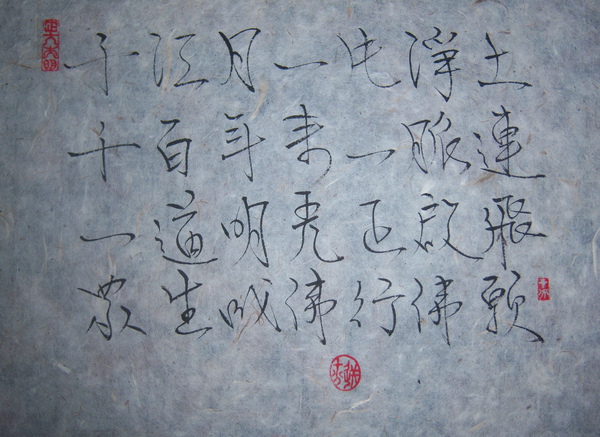 千江月一片淨土
千百年來一脈連
一道明亮正啟飛
眾生成佛行佛願